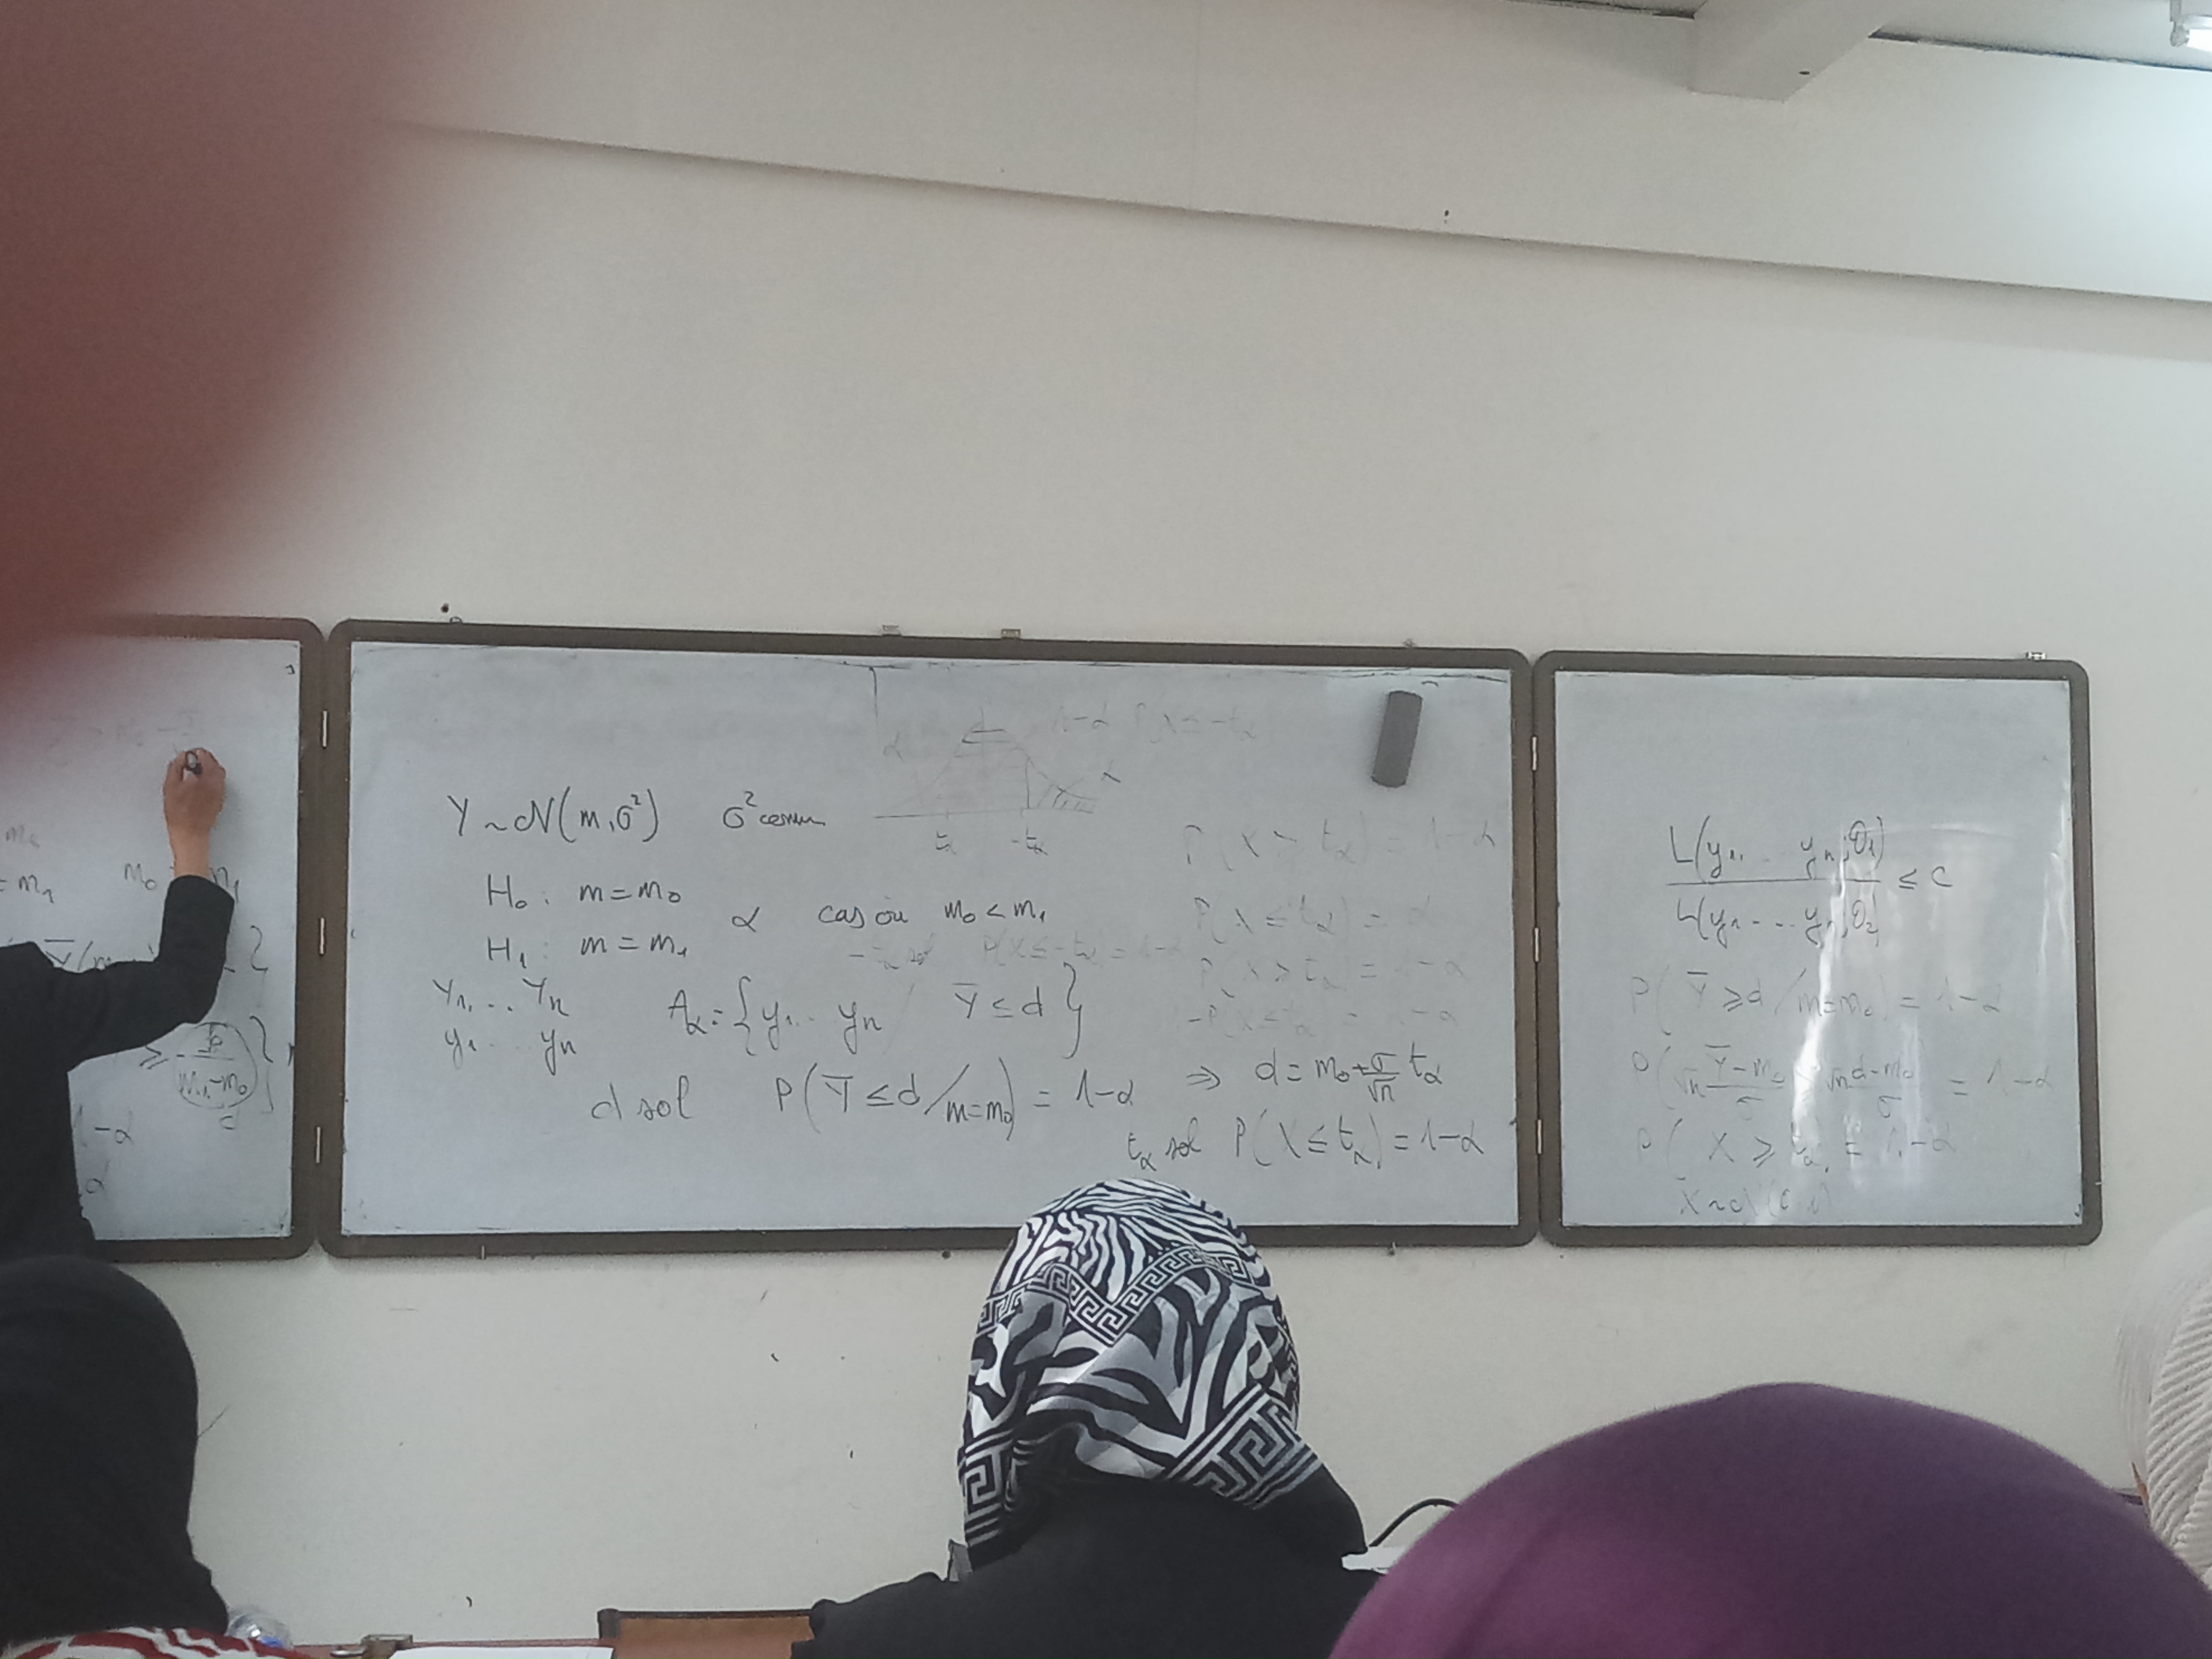 = m₁ m₀
≥ m₁-m₀ }
c
1-α
α
Y ~ N(m, σ²) σ² connu
H₀ : m = m₀
α cas où m₀ < m₁
H₁ : m = m₁
Y₁, .. Yn
y₁ ... yn
Aα = { y₁ .. yn / Ȳ ≤ d }
d sol P( Ȳ ≤ d / m=m₀ ) = 1-α ⇒ d = m₀ + σ/√n tα
tα sol P( X ≤ tα ) = 1-α
1-α P(X ≤ -tα
α
α
tα -tα
P( X ≥ tα ) = 1-α
P(X ≤ tα) = α
P(X ≤ -tα) = 1-α
P( X > tα ) = 1-α
-P(X ≤ tα) = 1-α
L(y₁, .. yn ; θ₁)
≤ c
L(y₁ ... yn ; θ₂)
P( Ȳ ≥ d / m=m₀ ) = 1-α
P( √n Ȳ-m₀/σ √n d-m₀/σ = 1-α
P( X ≥ tα ) = 1-α
X ~ N(0,1)